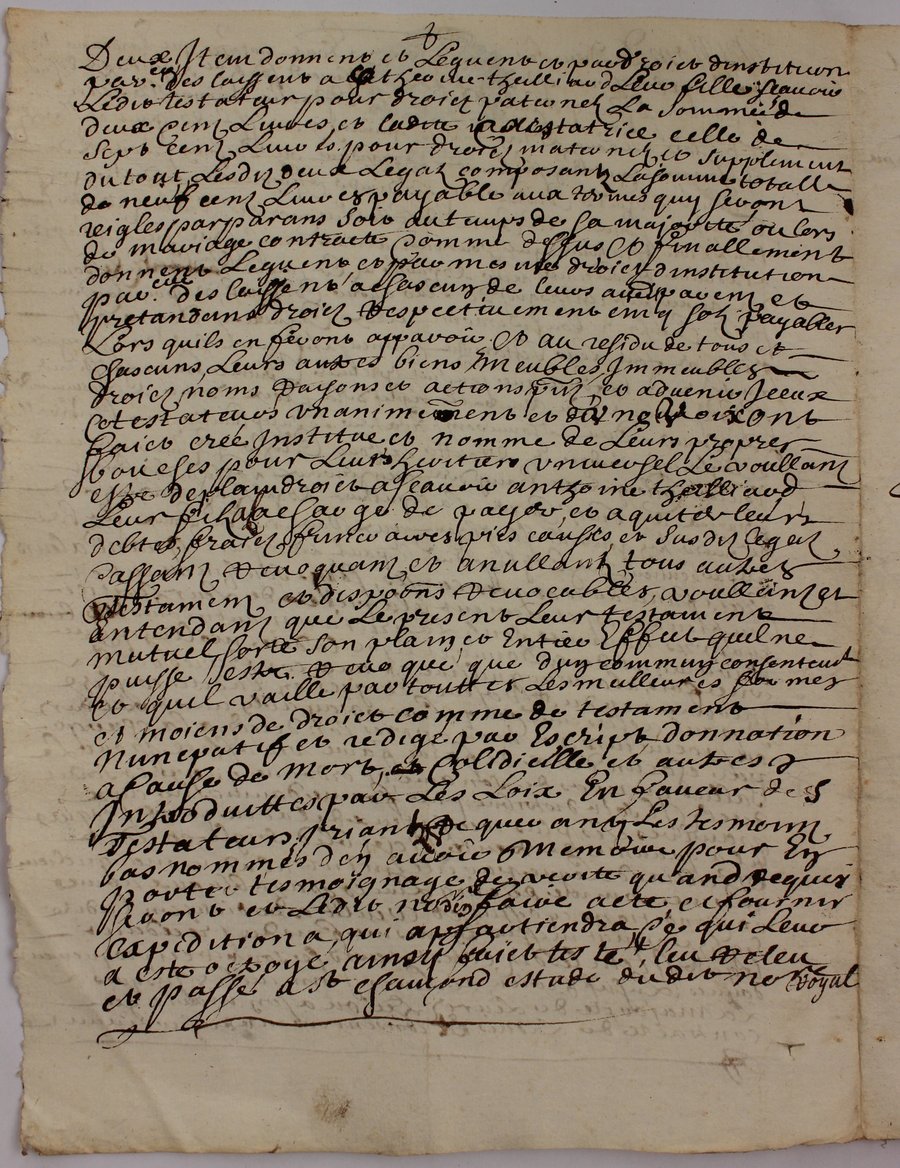 Deux Item donnent et Leguent et par droict dinstitution
par.re des laissent a Catherine thelliard Leur fille scavoir
Ledit testateur pour droict paternel La somme de
deux Cent Livres et ladite testatrice celle de
Sept Cent Livres pour droict maternel et supplement
du tout Lesdit deux Legat composant La somme totalle
de neuf cent Livres payable aux termes quy seront
reigles par parans soit au temps de sa majorité ou lors
de mariage contracte comme dessus et finallement
donnent Leguent et par mesme droict dinstitution
par.re des laissent a chascun de leurs autres parent et
pretandans droict respectivement cinq sol payables
Lors quils en feront apparoir Et au residu de tous et
chascuns Leurs autres biens Meubles Immeubles
droict noms raisons et actions pnt et advenir Iceux
testateurs unanimement et dune voix ont
faict créé Institue et nomme de Leurs propres
bouches pour Leurs heritier universel Le voullant
estre de plain droict ascavoir anthoine thelliard
Leur fils a la charge de payer et aquiter leurs
debtes fraict funeraires pies causes et susdit legat
Cassant revoquant et anullant tous autres
testament et dispoons revocables, voullant et
antendant que Le present Leur testament
mutuel sorte son plain et Entier Effect quil ne
puisse estre revoque que dun commun consentement
et quil vaille par touttes Les meilleures formes
et moiens de droict comme de testament
Nuncupatif et redige par Escript donnation
a cause de mort Codicille et autres
Introduittes par Les Loix En faveur des
Testateurs priant requerant Les tesmoins
bas nommés den avoir Memoire pour En
Porter tesmoignage de verite quand requis
seront et Ledit no.re den faire acte et fournir
Expedition a qui appartiendra Ce qui Leur
a este octroye ainsy faict teste leu releu
et passé a St Chamond estude du dit no.re Royal